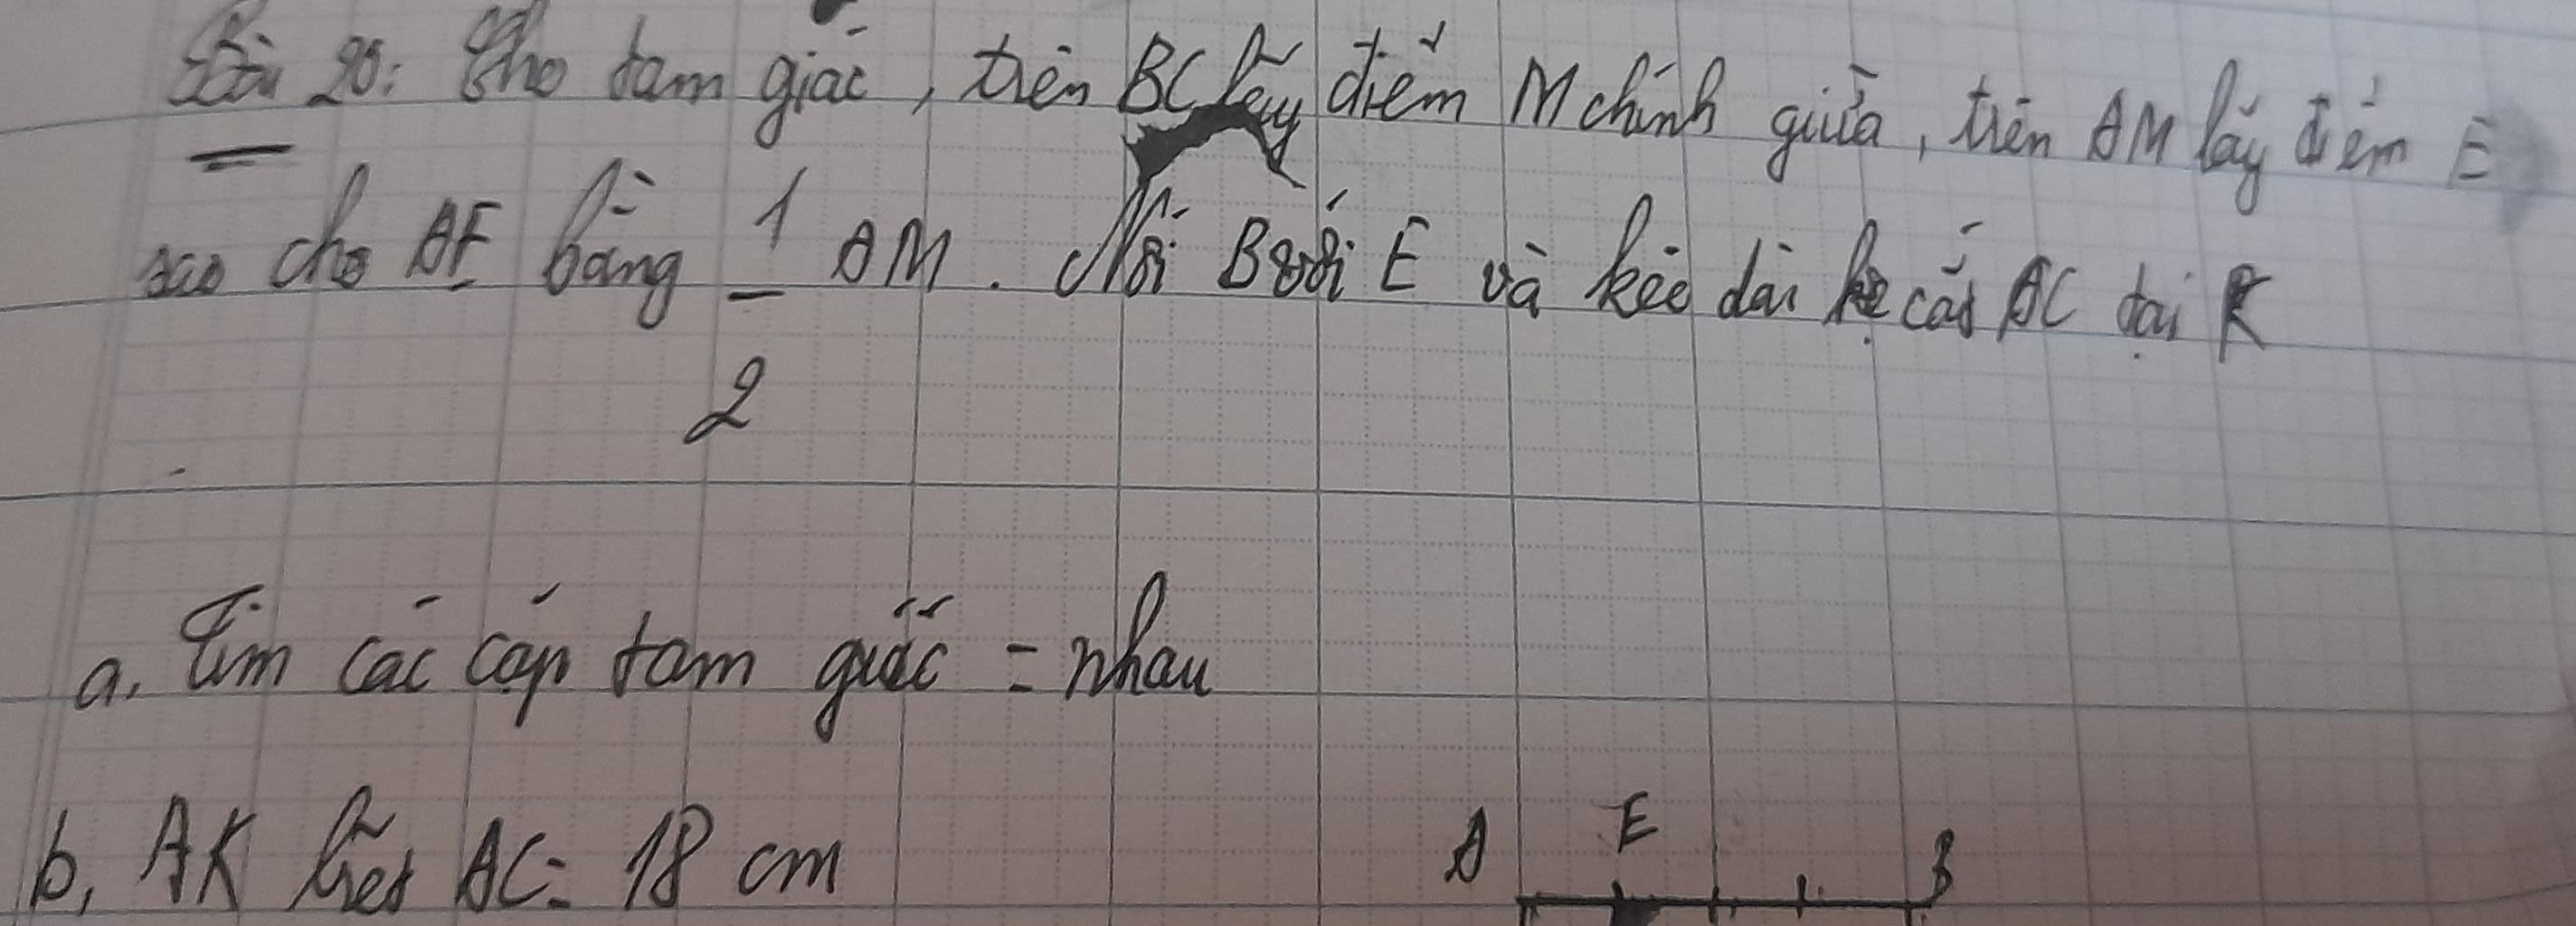 Bài 20: Cho tam giác, trên BC lấy điểm M chính giữa, trên AM lấy điểm E
sao cho AE bằng 1/2 AM. Nối B với E và kéo dài cắt AC tại K
a. Tìm các cặp tam giác = nhau
b, AK biết AC = 18 cm
A E B